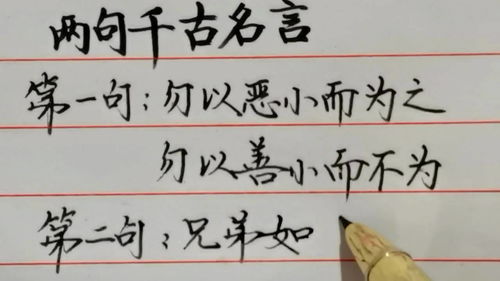 两句千古名言
第一句：勿以恶小而为之
勿以善小而不为
第二句：兄弟如